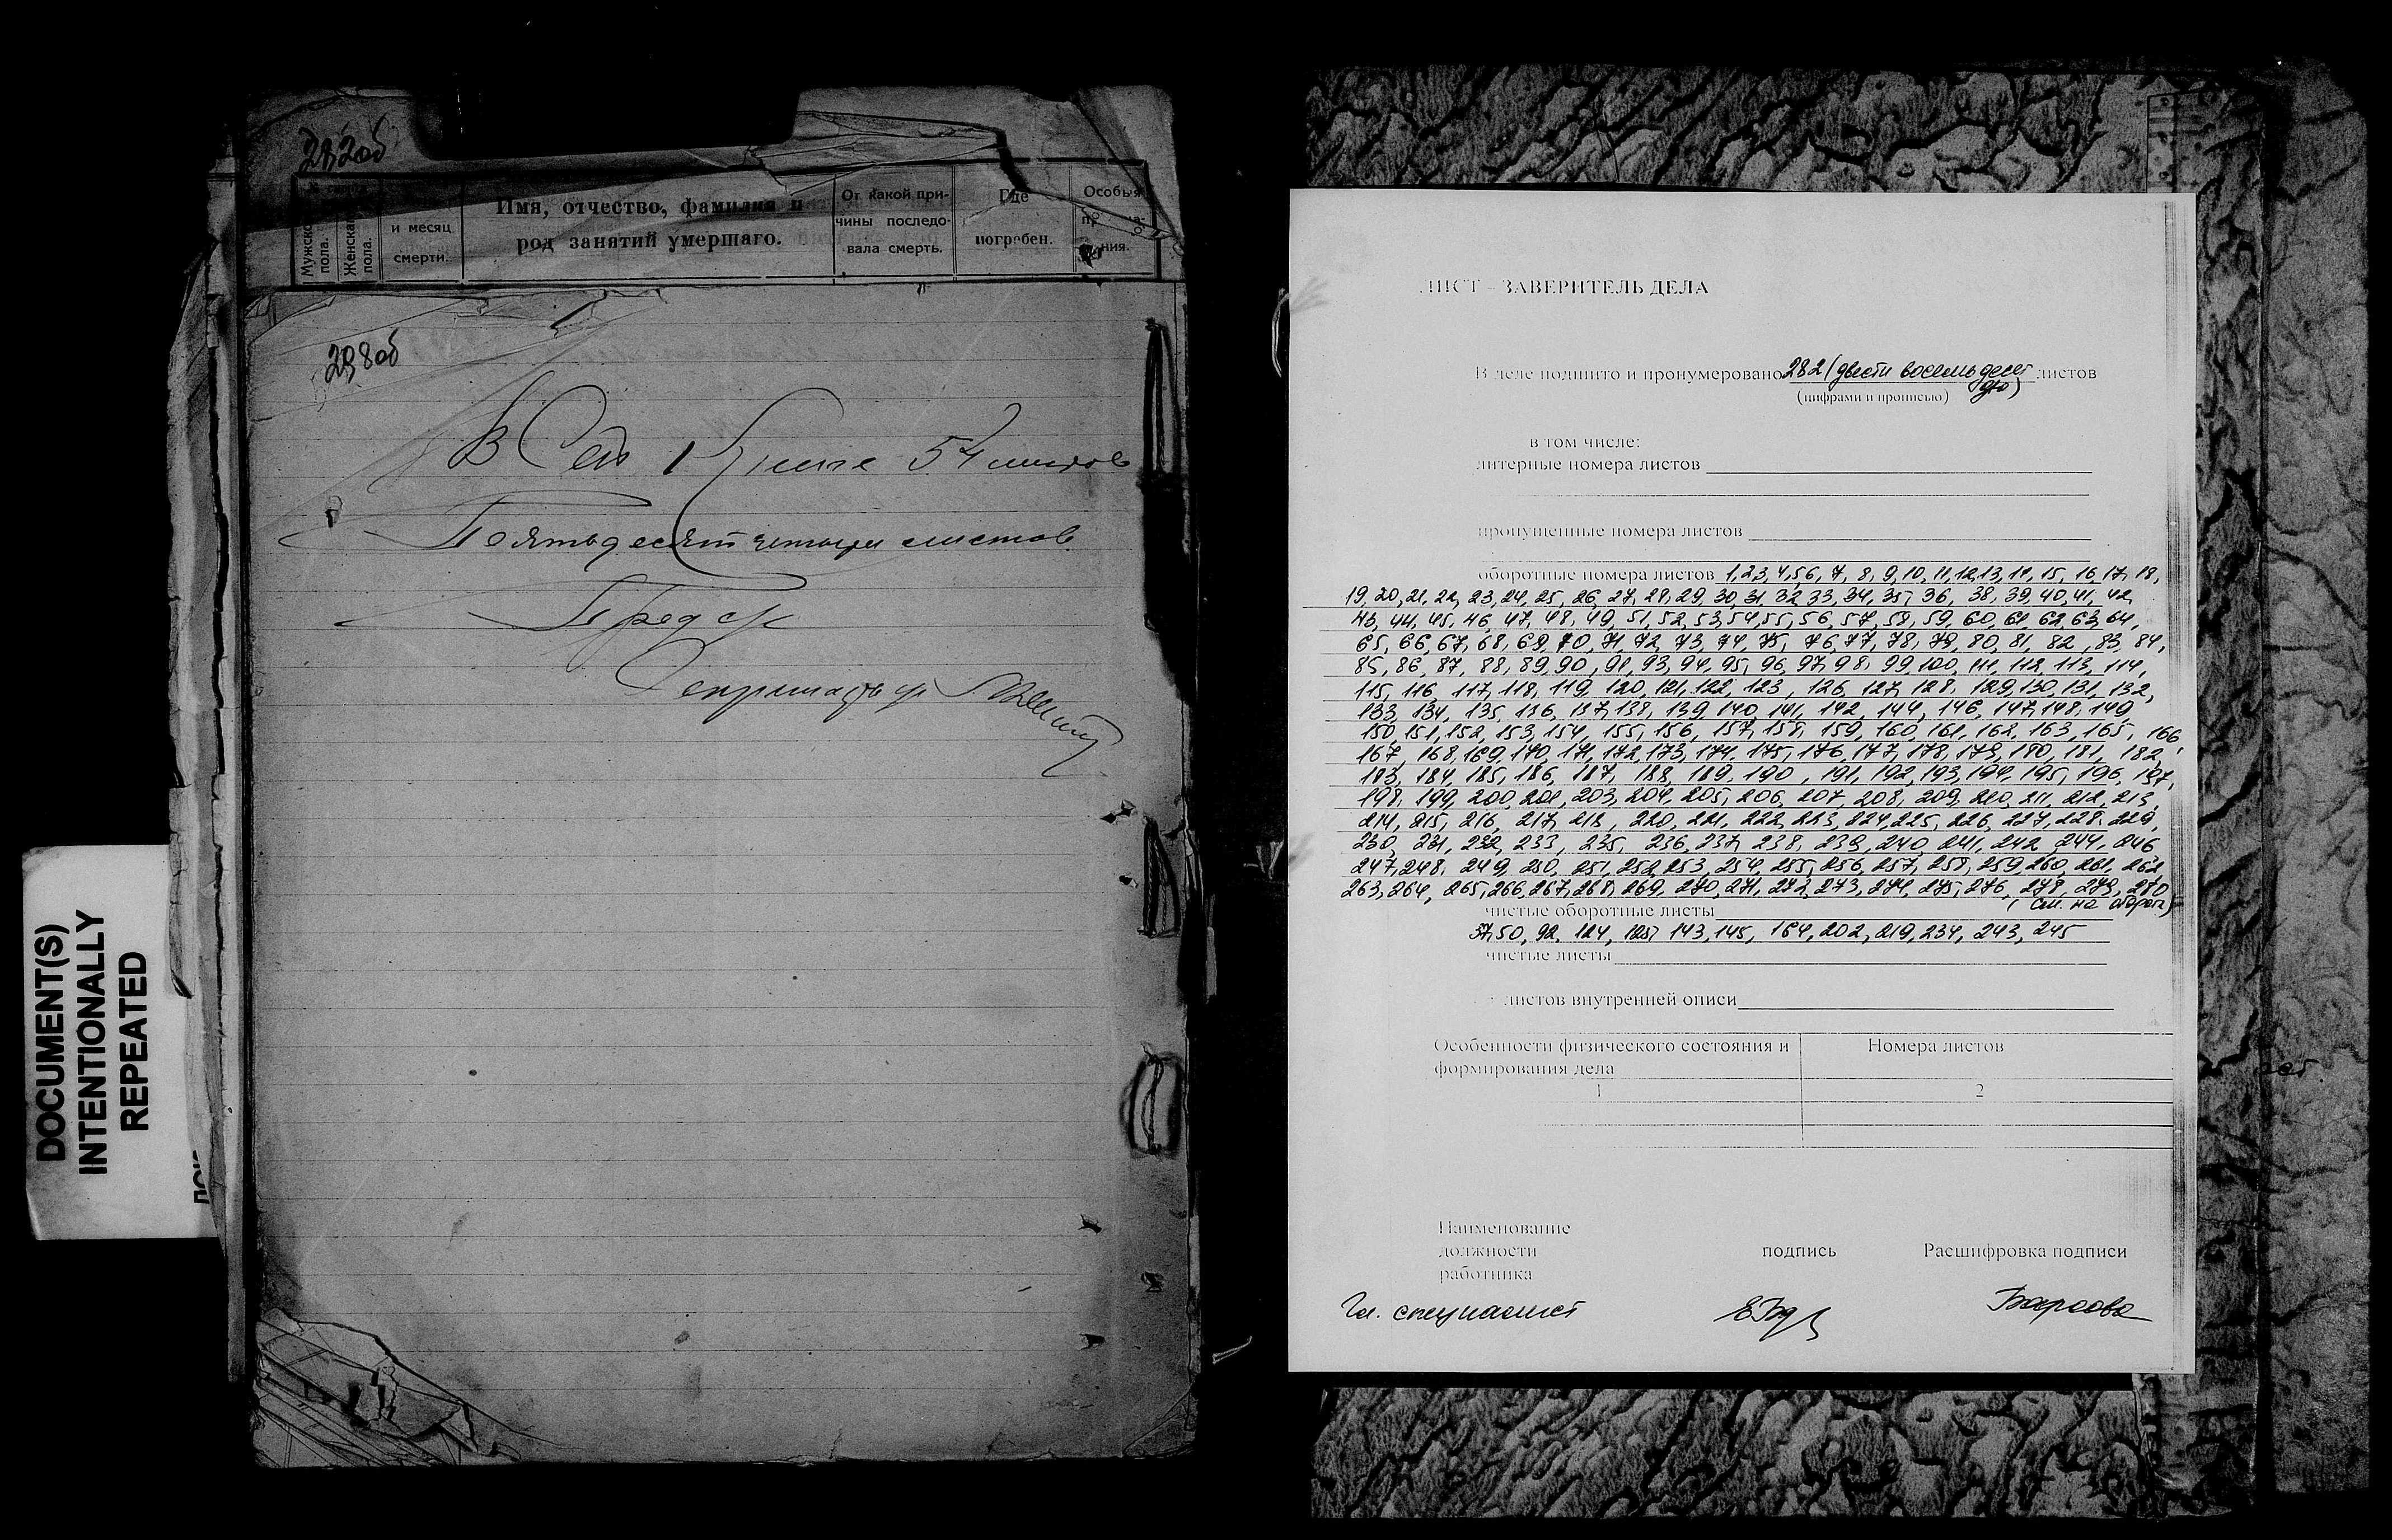 282об
Мужско
пола.
Женска
пола.
и месяц
смерти.
Имя, отчество, фамилия и
род занятий умершаго.
От какой при-
чины последо-
вала смерть.
Где
погребен.
Особыя
ния.
298об
В Сей Книге 54 листов
Пятьдесят четыри листов
Пред
Секретарь
DOCUMENT(S)
INTENTIONALLY
REPEATED
ЛИСТ - ЗАВЕРИТЕЛЬ ДЕЛА
В деле подшито и пронумеровано 282 (двести восемьдесят листов
(цифрами и прописью) два)
в том числе:
литерные номера листов
пропущенные номера листов
оборотные номера листов 1,2,3,4,5,6, 7, 8, 9, 10, 11, 12, 13, 14, 15, 16, 17, 18,
19, 20, 21, 22, 23, 24, 25, 26, 27, 28, 29, 30, 31, 32, 33, 34, 35, 36, 38, 39, 40, 41, 42,
43, 44, 45, 46, 47, 48, 49, 51, 52, 53, 54, 55, 56, 57, 58, 59, 60, 61, 62, 63, 64,
65, 66, 67, 68, 69, 70, 71, 72, 73, 74, 75, 76, 77, 78, 79, 80, 81, 82, 83, 84,
85, 86, 87, 88, 89, 90, 91, 93, 94, 95, 96, 97, 98, 99, 100, 111, 112, 113, 114,
115, 116, 117, 118, 119, 120, 121, 122, 123, 126, 127, 128, 129, 130, 131, 132,
133, 134, 135, 136, 137, 138, 139, 140, 141, 142, 144, 146, 147, 148, 149
150, 151, 152, 153, 154, 155, 156, 157, 158, 159, 160, 161, 162, 163, 165, 166,
167, 168, 169, 170, 171, 172, 173, 174, 175, 176, 177, 178, 179, 180, 181, 182,
183, 184, 185, 186, 187, 188, 189, 190, 191, 192, 193, 194, 195, 196, 197,
198, 199, 200, 201, 203, 204, 205, 206, 207, 208, 209, 210, 211, 212, 213,
214, 215, 216, 217, 218, 220, 221, 222, 223, 224, 225, 226, 227, 228, 229,
230, 231, 232, 233, 235, 236, 237, 238, 239, 240, 241, 242, 244, 246
247, 248, 249, 250, 251, 252, 253, 254, 255, 256, 257, 258, 259, 260, 261, 262
263, 264, 265, 266, 267, 268, 269, 270, 271, 272, 273, 274, 275, 276, 278, 279, 280
(см. на обороте)
чистые оборотные листы
37, 50, 92, 124, 125, 143, 145, 164, 202, 219, 234, 243, 245
чистые листы
листов внутренней описи
Особенности физического состояния и
формирования дела
Номера листов
1 2
Наименование
должности
работника
подпись
Расшифровка подписи
Гл. специалист